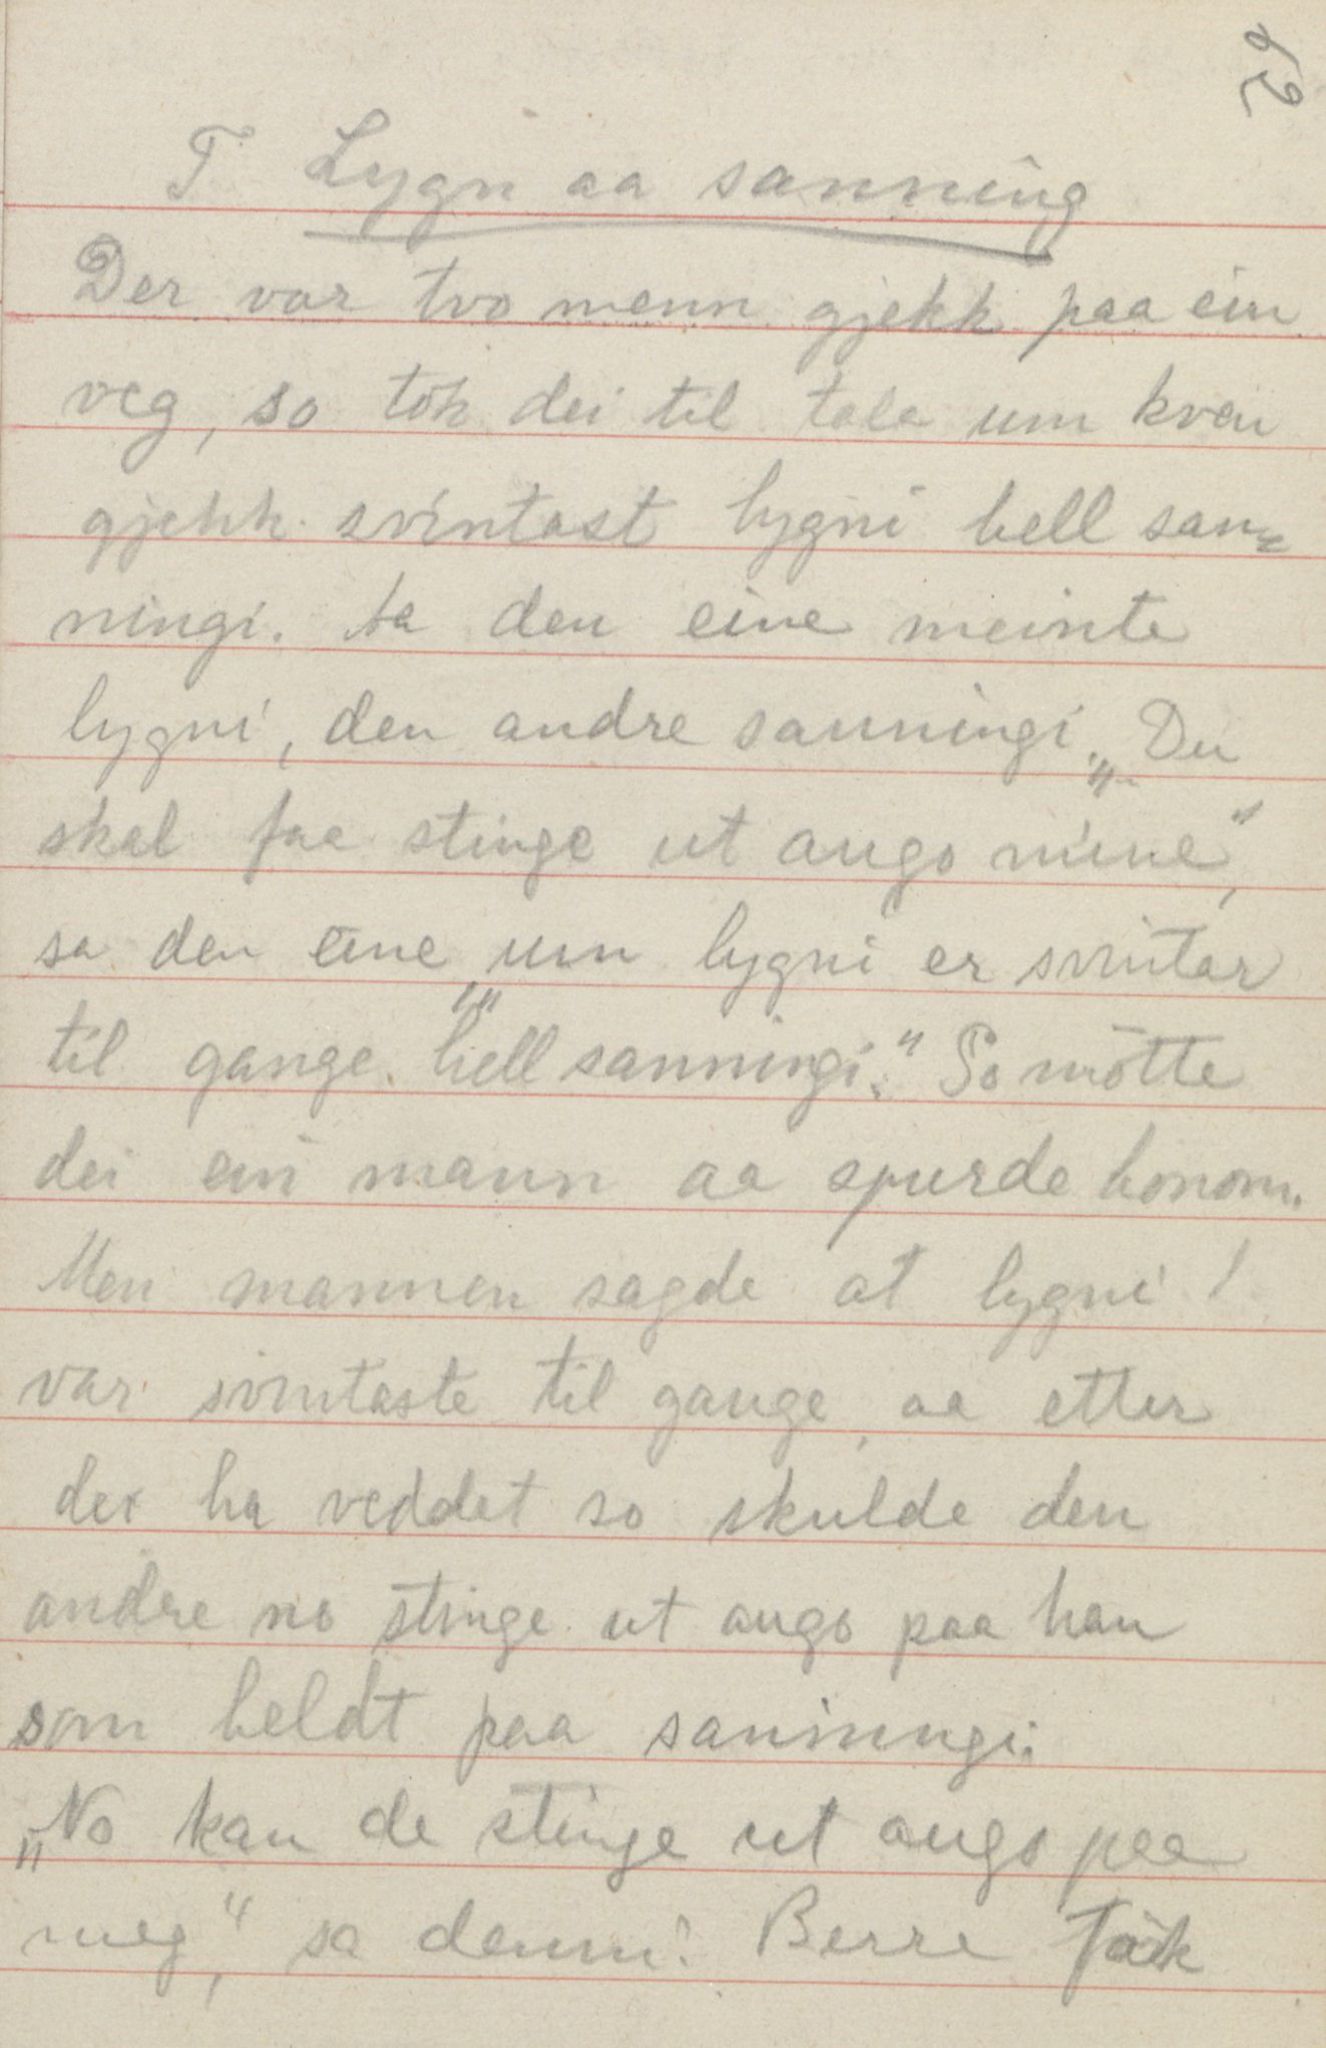 62
T Lygn aa sanning
Der var tvo menn gjekk paa ein
veg, so tok dei til tala um kven
gjekk svintast lygni hell san=
ningi. Aa den eine meinte
lygni, den andre sanningi. „Du
skal faa stinge ut augo mine",
sa den eine „um lygni er svintar
til gange hell sanningi." So møtte
dei ein mann aa spurde honom.
Men mannen sagde at lygni !
var svintaste til gange, aa etter
dei ha veddet so skulde den
andre no stinge ut augo paa han
som heldt paa sanningi.
„No kan de stinge ut augo paa
meg," sa denni. Berre